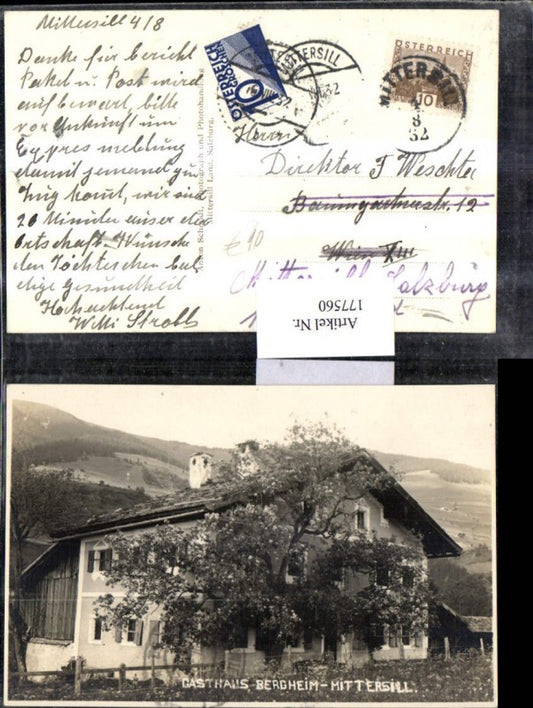 Mittersill 4/8
Danke für bericht
Paket u. Post wird
aufbewart, bitte
vor Ankunft um
Expres meldung
damit jemand zum
Zug komt, wir sind
20 Minuten auser der
Ortschaft. Wünsche
den Töchterchen bal
dige gesundheit
Hochachtend
Willi Strobl
Photograph und Photohandlung
Mittersill Land, Salzburg.
ÖSTERREICH
10
MITTERSILL
32
ÖSTERREICH
10
MITTERSILL
8
32
Herrn
Direktor F Weschta
Baumgartnerstr. 12
Wien XIII
€ 90
Mittersill Salzburg
Artikel Nr.
177560
GASTHAUS BERGHEIM - MITTERSILL.